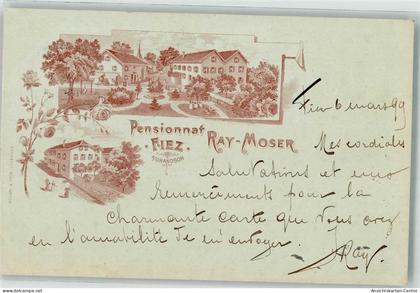 Pensionnat RAY-MOSER
FIEZ.
s/GRANDSON
Fiez 6 mars 99
Mes cordiales
Salutations et mes
remerciments pour la
charmante carte que Vous avez
eu l'amabilité de m'envoyer.
J Ray.
Ansichtskarten-Center